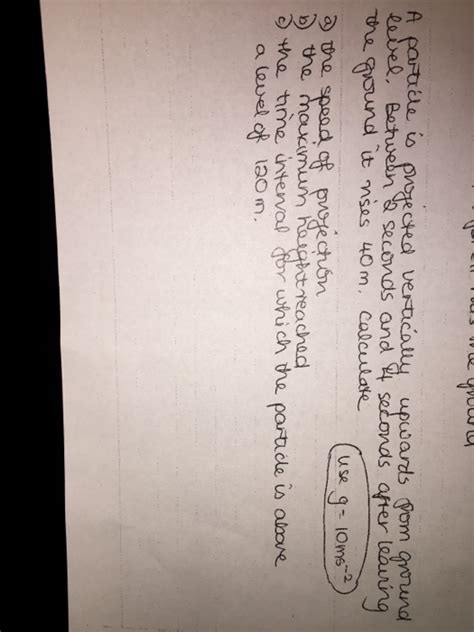 the ground
A particle is projected vertically upwards from ground
level. Between 2 seconds and 4 seconds after leaving
the ground it rises 40m. Calculate
use g = 10ms⁻²
a) the speed of projection
b) the maximum height reached
c) the time interval for which the particle is above
a level of 120m.